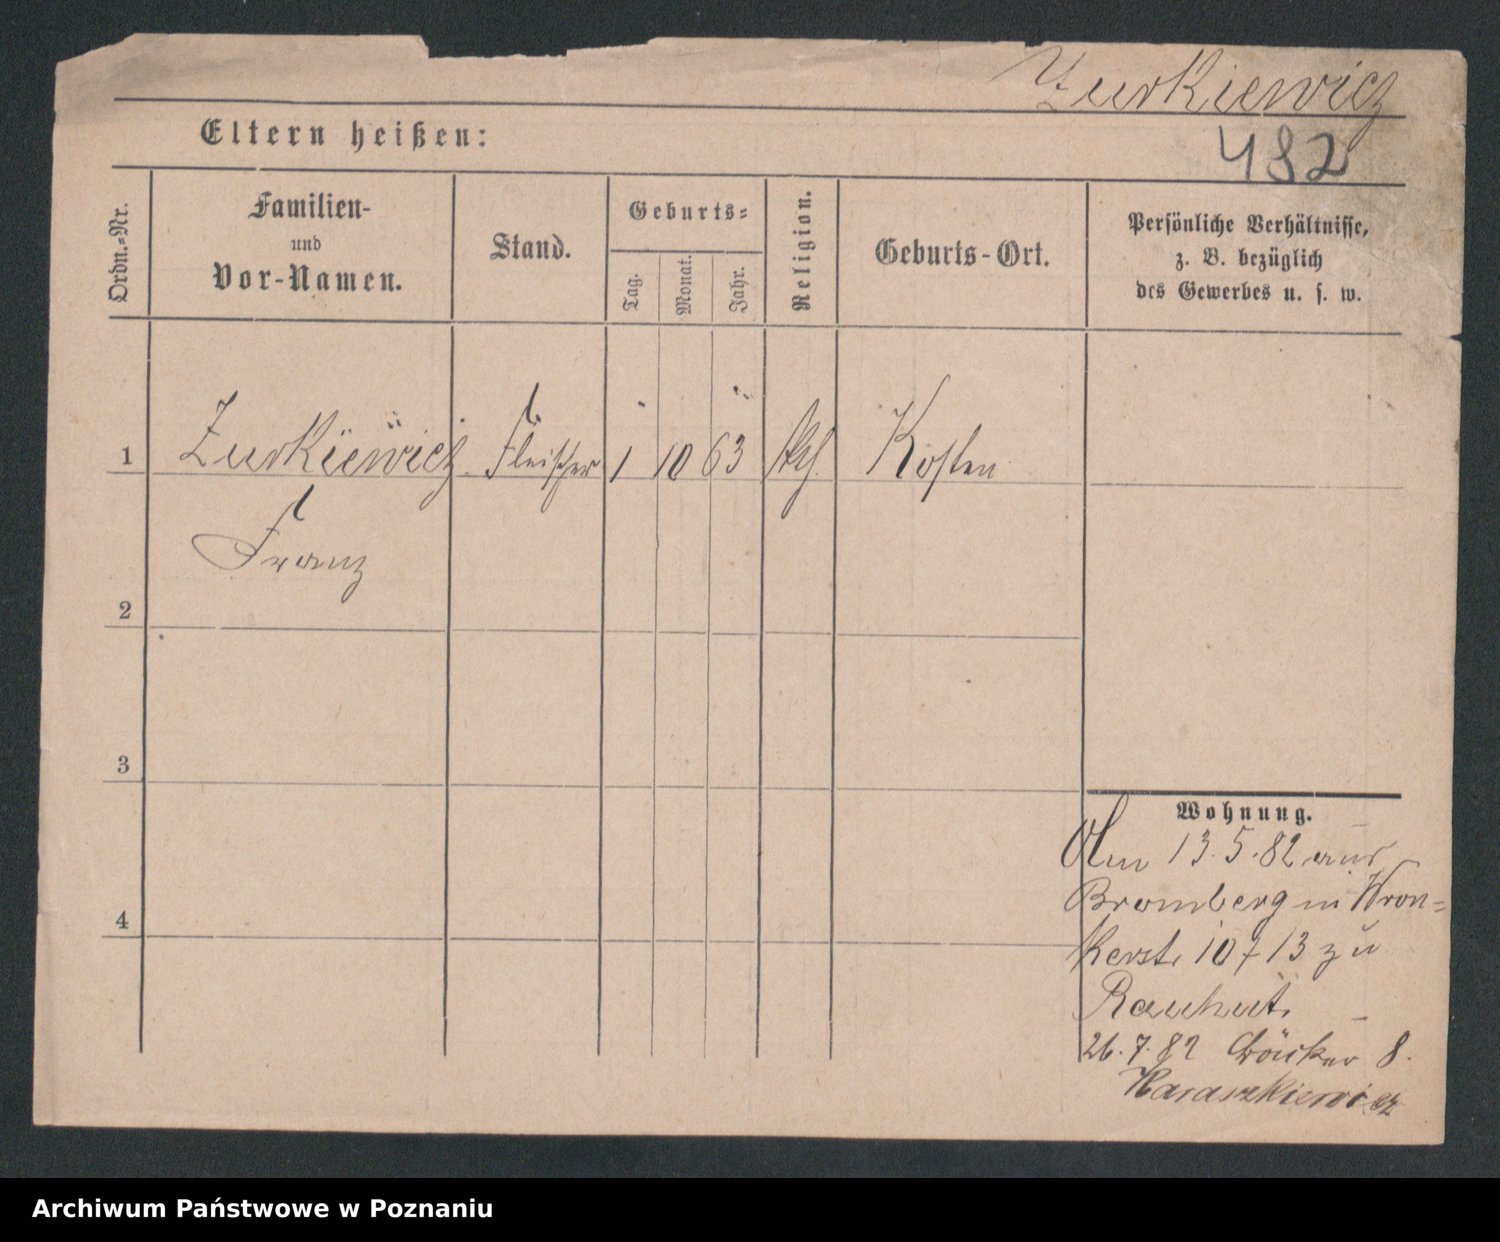 Zurkiewicz
Eltern heißen:
482
Ordn.=Nr.
Familien-
und
Vor-Namen.
Stand.
Geburts=
Tag.
Monat.
Jahr.
Religion.
Geburts-Ort.
Persönliche Verhältnisse,
z. B. bezüglich
des Gewerbes u. s. w.
1 Zurkiewicz Fleischer 1 10 63 kth Kosten
Franz
2
3
Wohnung.
Am 13.5.82 aus
Bromberg in Wron=
kerstr 10 713 zu
Rauhut.
4
26.7.82 8.
Haraszkiewicz
Archiwum Państwowe w Poznaniu